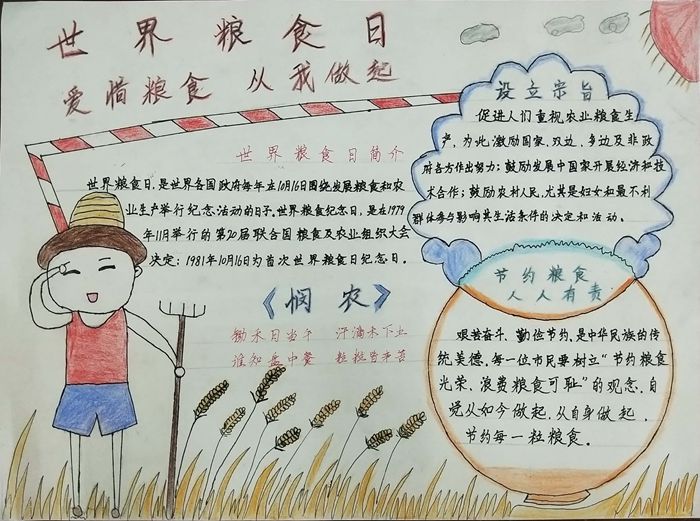 世界粮食日
爱惜粮食 从我做起
世界粮食日简介
世界粮食日,是世界各国政府每年在10月16日围绕发展粮食和农
业生产举行纪念活动的日子。世界粮食纪念日,是在1979
年11月举行的第20届联合国粮食及农业组织大会
决定:1981年10月16日为首次世界粮食日纪念日。
《悯农》
锄禾日当午 汗滴木下土
谁知盘中餐 粒粒皆辛苦
设立宗旨
促进人们重视农业粮食生
产,为此,激励国家、双边、多边及非政
府各方作出努力;鼓励发展中国家开展经济和技
术合作;鼓励农村人民,尤其是妇女和最不利
群体参与影响其生活条件的决定和活动。
节约粮食
人人有责
艰苦奋斗、勤俭节约,是中华民族的传
统美德。每一位市民要树立“节约粮食
光荣、浪费粮食可耻”的观念,自
觉从如今做起,从自身做起,
节约每一粒粮食。